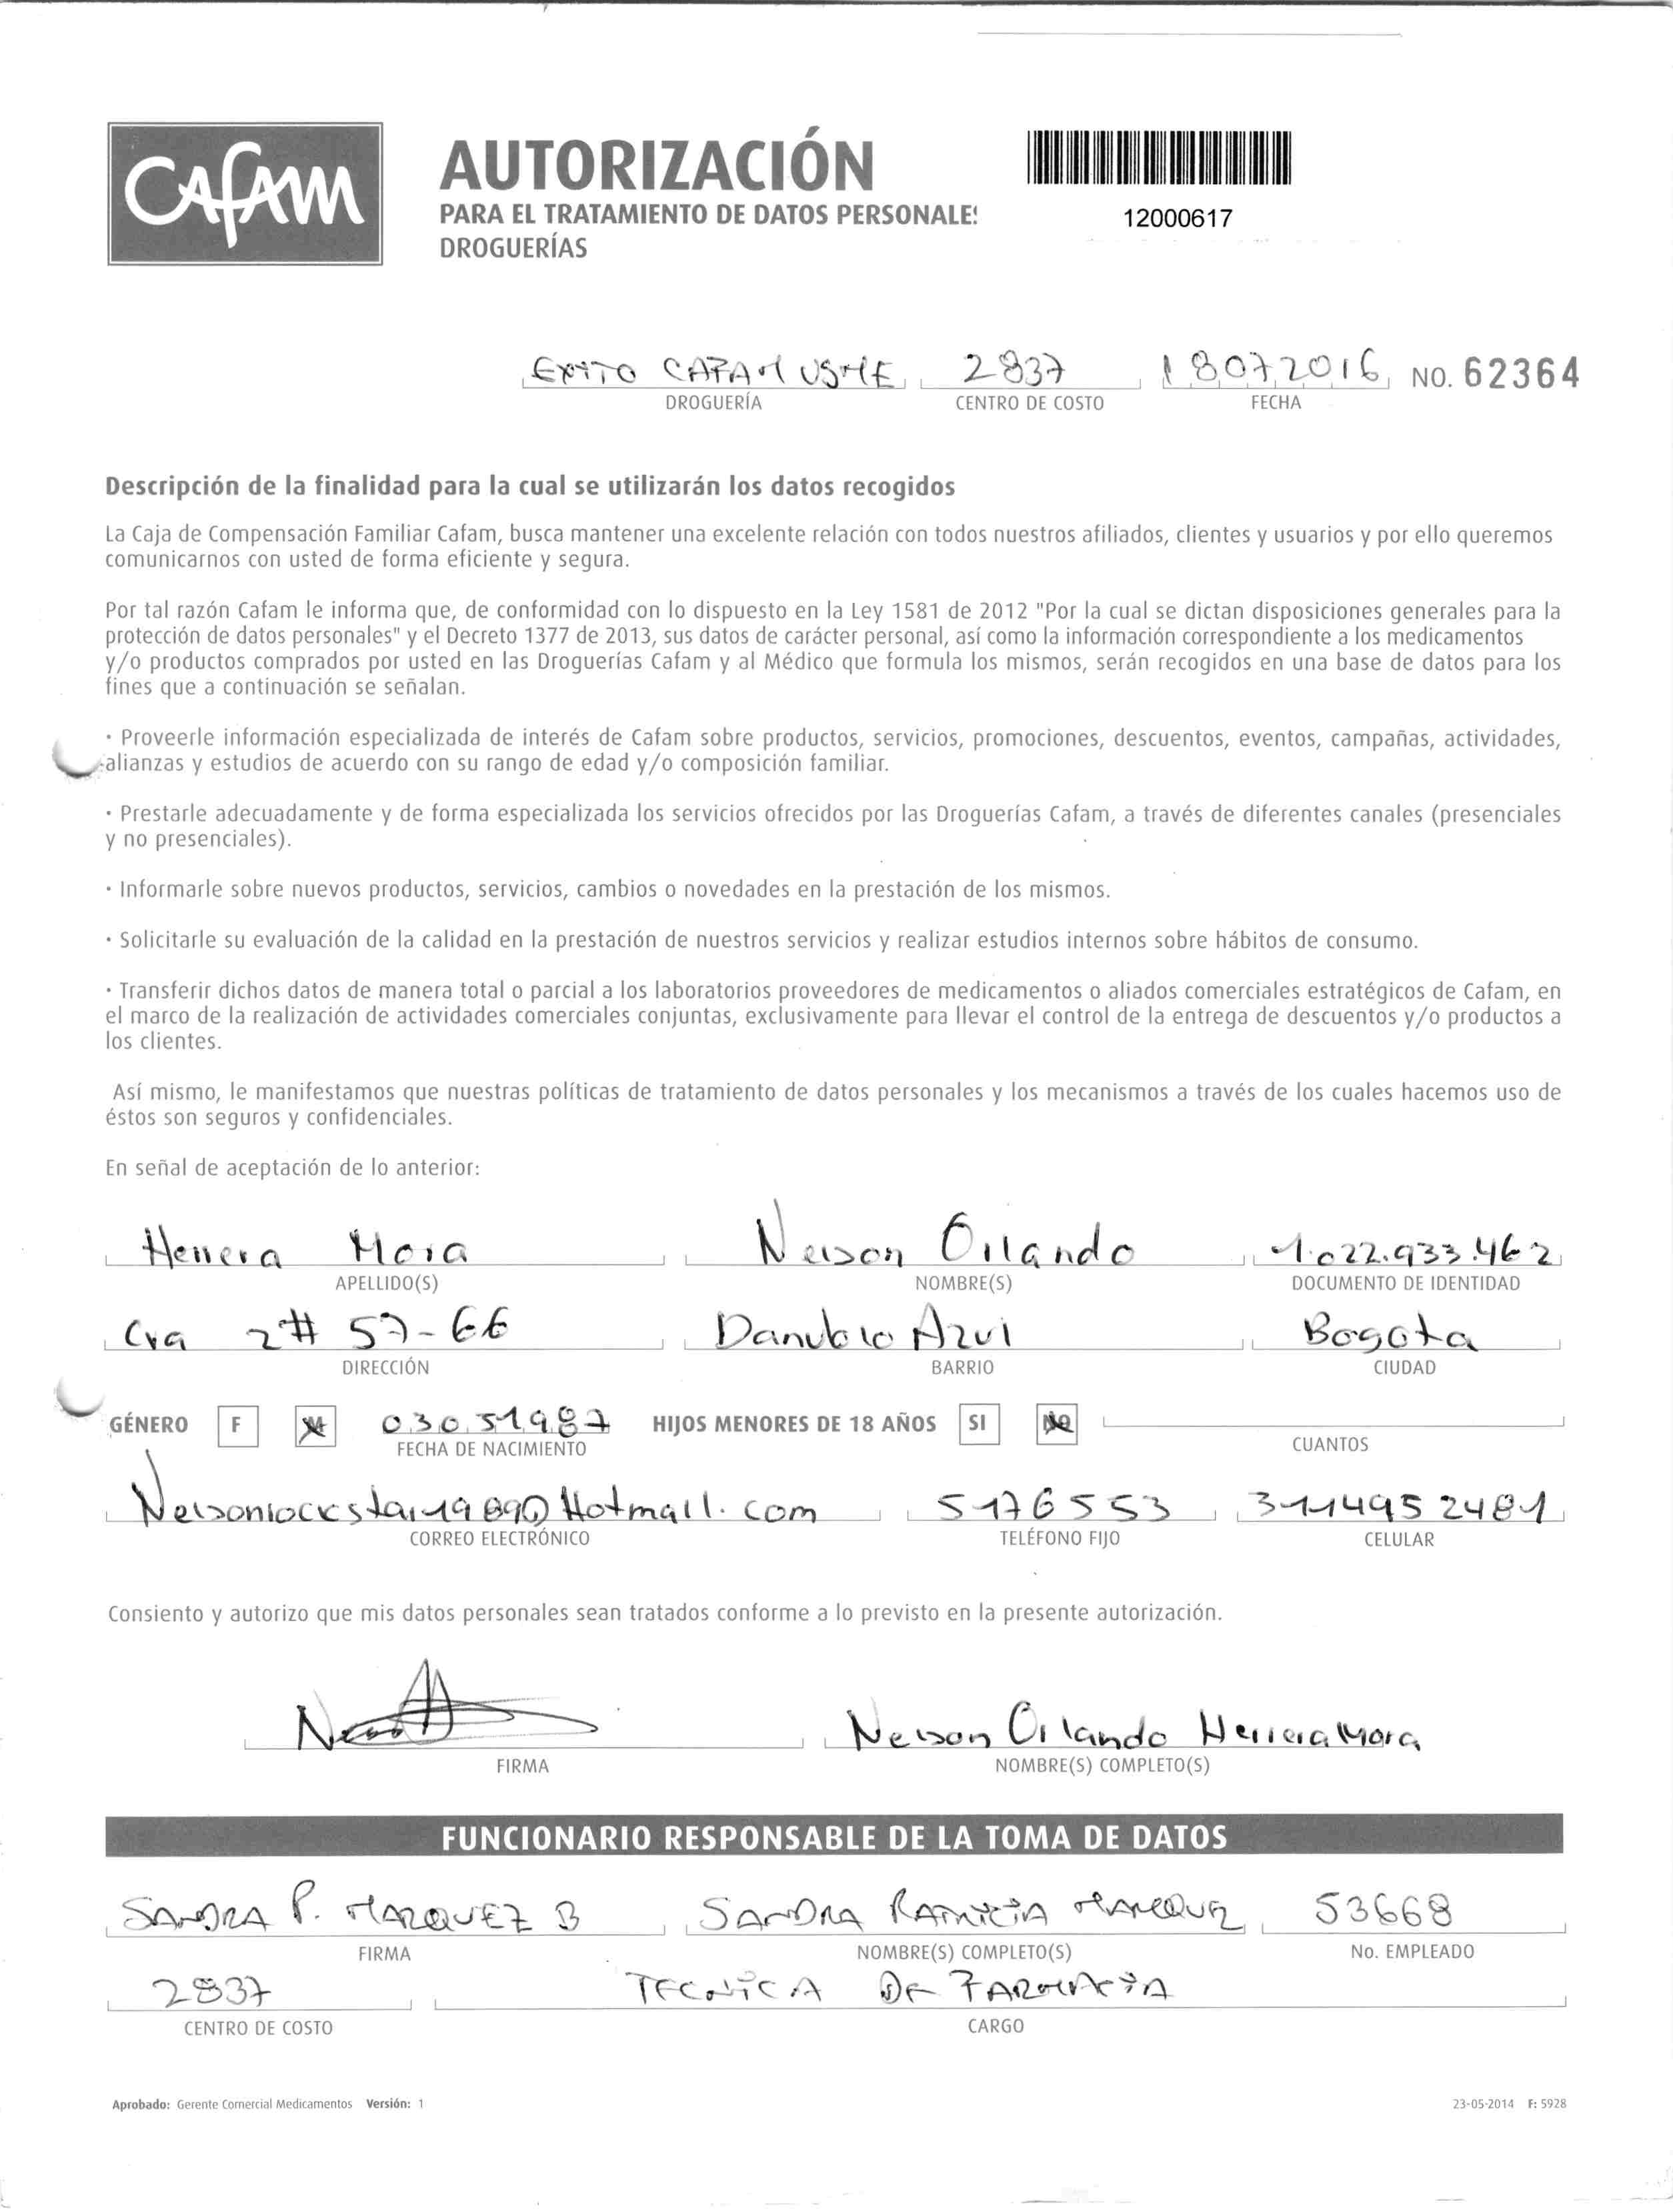 CAFAM
AUTORIZACIÓN
PARA EL TRATAMIENTO DE DATOS PERSONALES
DROGUERÍAS
12000617
EXITO CAFAM USME 2837 18072016 NO. 62364
DROGUERÍA CENTRO DE COSTO FECHA
Descripción de la finalidad para la cual se utilizarán los datos recogidos
La Caja de Compensación Familiar Cafam, busca mantener una excelente relación con todos nuestros afiliados, clientes y usuarios y por ello queremos
comunicarnos con usted de forma eficiente y segura.
Por tal razón Cafam le informa que, de conformidad con lo dispuesto en la Ley 1581 de 2012 "Por la cual se dictan disposiciones generales para la
protección de datos personales" y el Decreto 1377 de 2013, sus datos de carácter personal, así como la información correspondiente a los medicamentos
y/o productos comprados por usted en las Droguerías Cafam y al Médico que formula los mismos, serán recogidos en una base de datos para los
fines que a continuación se señalan.
· Proveerle información especializada de interés de Cafam sobre productos, servicios, promociones, descuentos, eventos, campañas, actividades,
alianzas y estudios de acuerdo con su rango de edad y/o composición familiar.
· Prestarle adecuadamente y de forma especializada los servicios ofrecidos por las Droguerías Cafam, a través de diferentes canales (presenciales
y no presenciales).
· Informarle sobre nuevos productos, servicios, cambios o novedades en la prestación de los mismos.
· Solicitarle su evaluación de la calidad en la prestación de nuestros servicios y realizar estudios internos sobre hábitos de consumo.
· Transferir dichos datos de manera total o parcial a los laboratorios proveedores de medicamentos o aliados comerciales estratégicos de Cafam, en
el marco de la realización de actividades comerciales conjuntas, exclusivamente para llevar el control de la entrega de descuentos y/o productos a
los clientes.
Así mismo, le manifestamos que nuestras políticas de tratamiento de datos personales y los mecanismos a través de los cuales hacemos uso de
éstos son seguros y confidenciales.
En señal de aceptación de lo anterior:
Herrera Mora Nelson Orlando 1.022.933.462
APELLIDO(S) NOMBRE(S) DOCUMENTO DE IDENTIDAD
Cra 2# 57-66 Danubio Azul Bogota
DIRECCIÓN BARRIO CIUDAD
GÉNERO F M 03051987 HIJOS MENORES DE 18 AÑOS SI NO
FECHA DE NACIMIENTO CUANTOS
Nelsonrockstar1989@Hotmail.com 5176553 3114952481
CORREO ELECTRÓNICO TELÉFONO FIJO CELULAR
Consiento y autorizo que mis datos personales sean tratados conforme a lo previsto en la presente autorización.
Nelson Orlando Herrera Mora
FIRMA NOMBRE(S) COMPLETO(S)
FUNCIONARIO RESPONSABLE DE LA TOMA DE DATOS
SANDRA P. MARQUEZ B SANDRA PATRICIA MARQUEZ 53668
FIRMA NOMBRE(S) COMPLETO(S) No. EMPLEADO
2837 TECNICA DE FARMACIA
CENTRO DE COSTO CARGO
Aprobado: Gerente Comercial Medicamentos Versión: 1 23-05-2014 F: 5928